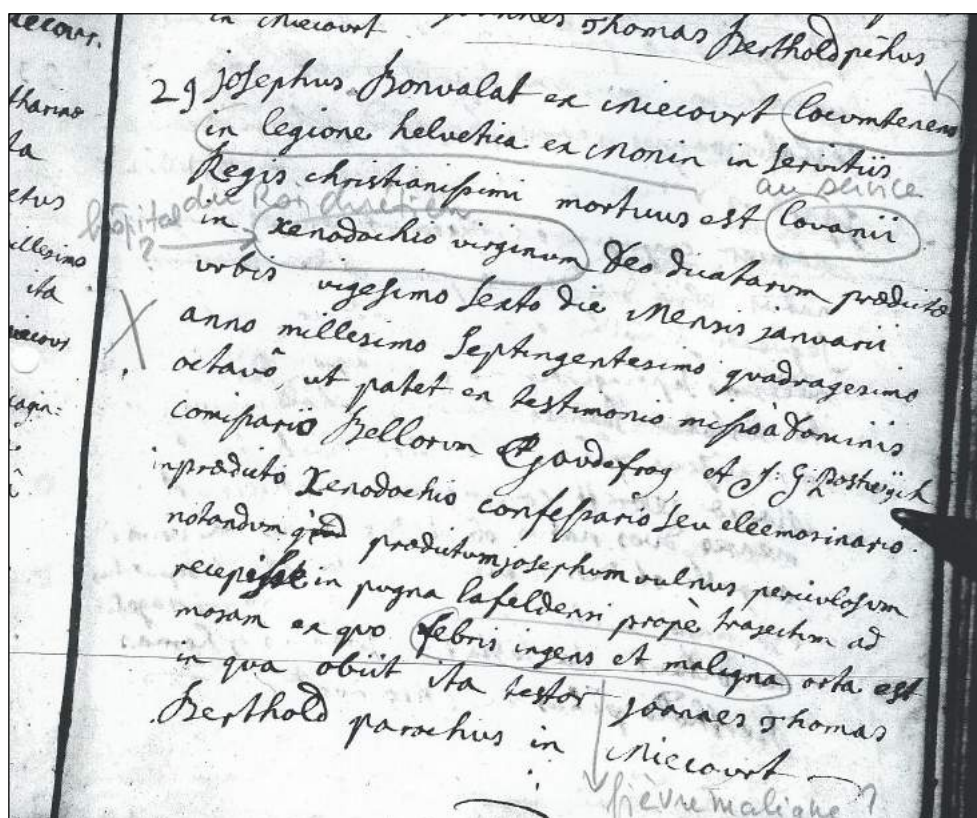 ecour.
tharina
ta
etus
illesimo
ita
iecour
in Miecourt Joannes Thomas Berthold pchus
29 josephus Bonvalat ex Miecourt locumtenens
in legione helvetica ex Monin in servitiis
Regis christianissimi mortuus est lovanii
au service
du Roi chrétien
hôpital
?
in xenodochio virginum Deo dicatarum prædictæ
urbis vigesimo sexto die Mensis januarii
anno millesimo septingentesimo quadragesimo
octavô, ut patet ex testimonio missô à Dominis
comissariô Bellorum Gaudefroy, et J. G.
in prædicto Xenodochio confessariô seu eleemosinariô.
notandum quod prædictum josephum vulnus periculosum
recepisse in pugna lafeldensi propè trajectum ad
mosam ex quo febris ingens et maligna orta est
in qua obiit ita testor joannes Thomas
Berthold parochus in Miecourt
fièvre maligne ?